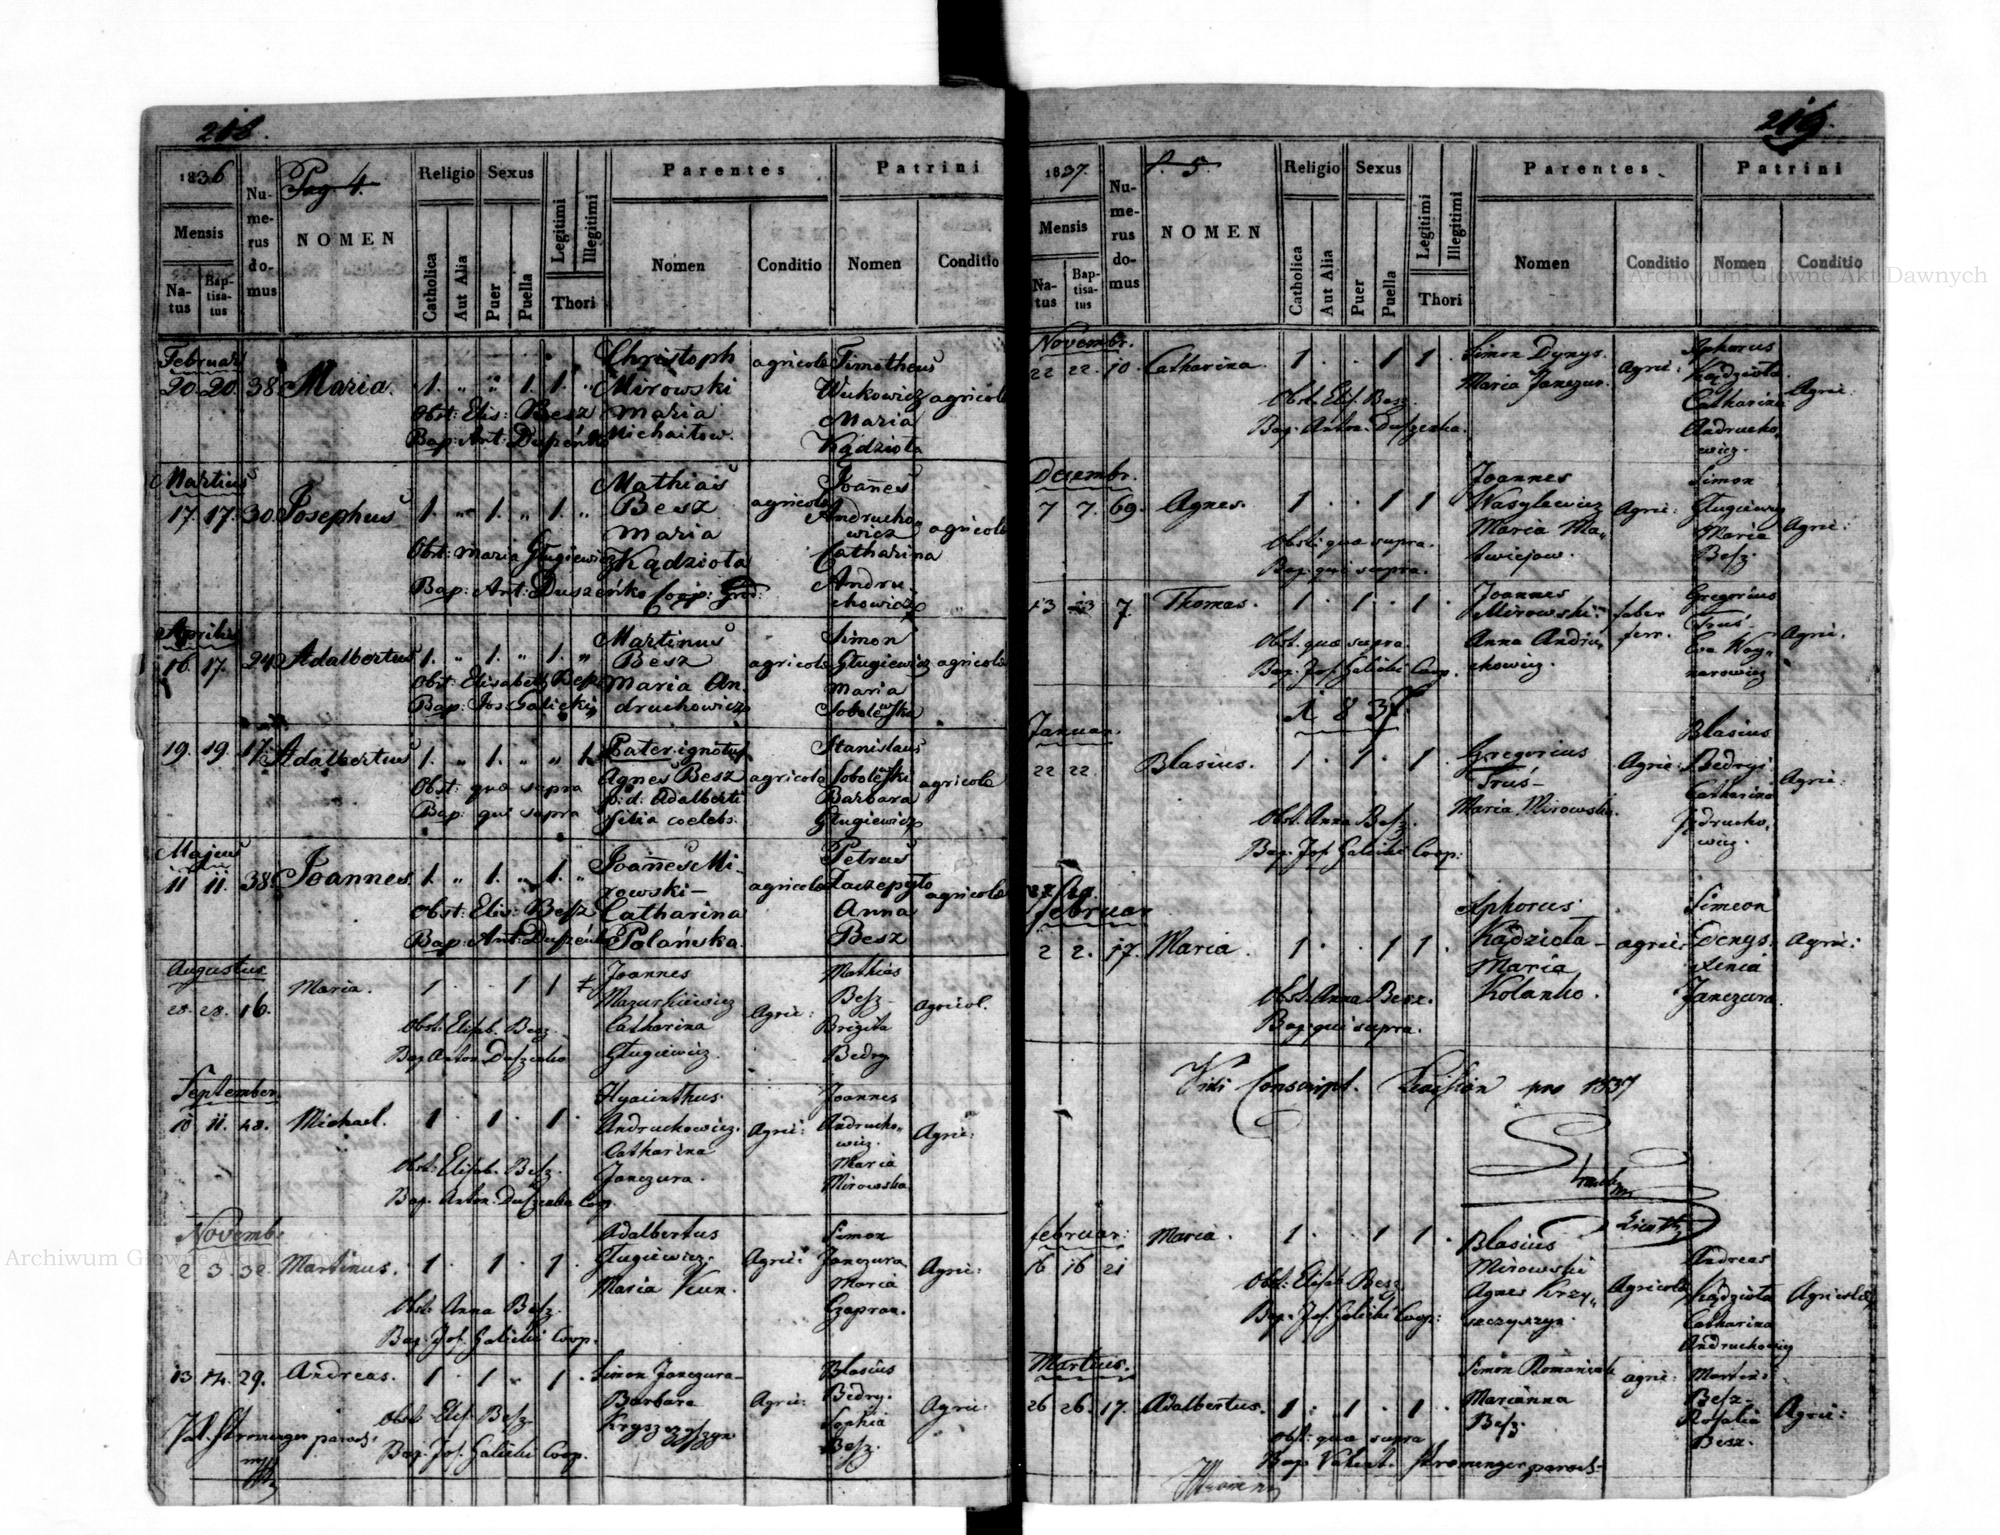 218.
1836
Pag 4.
Religio Sexus
Parentes
Patrini
Mensis
Numerus domus
NOMEN
Catholica
Aut Alia
Puer
Puella
Legitimi
Illegitimi
Thori
Nomen
Conditio
Nomen
Conditio
Natus
Baptisatus
Februar
20. 20. 38 Maria. 1. „ „ 1. 1. „
Christoph
Mirowski
Maria
Michaitow.
agricola
Timotheus
Wukowicz
Maria
Kądziota
agricola
Obst: Elis: Besz
Bap: Ant: Duszeńko
Martius
17. 17. 30 Josephus 1. „ 1. „ 1. „
Mathias
Besz
Maria
Kądziota
agricola
Joannes
Andrucho-
wicz
Catharina
Andru-
chowicz
agricola
Obst: Maria Gługiewicz
Bap: Ant: Duszeńko Coop: Gród:
Aprilis
16. 17. 24 Adalbertus 1. „ 1. „ 1. „
Martinus
Besz
Maria An-
druchowicz
agricola
Simon
Gługiewicz
Maria
Sobolewska
agricola
Obst: Elisabeth Besz
Bap: Jos: Galicki
19. 19. 17. Adalbertus 1. „ 1. „ „ 1.
Pater ignotus
Agnes Besz
p: d: Adalberti
filia coelebs.
agricola
Stanislaus
Sobolewski
Barbara
Gługiewicz
agricola
Obst: quae supra
Bap: qui supra
Majus
11 11. 38 Joannes 1. „ 1. „ 1. „
Joannes Mi-
rowski –
Catharina
Polańska.
agricola
Petrus
Zaczepyto
Anna
Besz
agricola
Obst: Elis: Besz
Bap: Ant: Duszeńko
Augustus
28. 28. 16. Maria. 1 . . 1 1
Joannes
Mazurkiewicz
Catharina
Gługiewicz.
Agric:
Mathias
Besz –
Brigita
Bedry
Agricol.
Obst: Elisab. Besz.
Bap. Anton. Duszenko
September.
10 11. 28. Michael. 1 . 1 . 1 .
Hyacinthus
Andruchowicz.
Catharina
Janczura.
Agric:
Joannes
Andrucho-
wicz.
Maria
Mirowska
Agric:
Obst: Elisab. Besz.
Bap. Anton. Duszenko Coop
Novemb.
2 3. 32. Martinus. 1 . 1 . 1 .
Adalbertus
Gługiewicz.
Maria Kun.
Agric:
Simon
Janczura
Maria
Czapran.
Agric:
Obst. Anna Besz.
Bap. Jos. Galicki Coop.
13 14. 29. Andreas. 1 . 1 . 1 .
Simon Janczura –
Barbara
Kryszczyszyn
Agric:
Blasius
Bedry.
Sophia
Besz.
Agric:
Obst: Elis. Besz
Bap. Jos. Galicki Coop.
Val. Stromenger paroch:
219.
1837.
P. 5.
Religio Sexus
Parentes
Patrini
Mensis
Numerus domus
NOMEN
Catholica
Aut Alia
Puer
Puella
Legitimi
Illegitimi
Thori
Nomen
Conditio
Nomen
Conditio
Natus
Baptisatus
Novembr.
22 22. 10. Catharina. 1 . . 1 1 .
Simon Dynys.
Maria Janczur.
Agric:
Aphorus
Kądziota
Catharina
Andrucho-
wicz.
Agric:
Obst. Elis. Besz
Bap. Anton. Duszenko.
Decembr.
7 7. 69. Agnes. 1 . . 1 1
Joannes
Wasylewicz
Maria Ma-
twiejow.
Agric:
Simon
Gługiewicz
Maria
Besz.
Agric:
Obst: quae supra.
Bap: qui supra.
13 13 7. Thomas. 1 . 1 . 1 .
Joannes
Mirowski
Anna Andru-
chowicz.
faber
ferr.
Gregorius
Truś.
Eva Woy-
narowicz
Agric.
Obst. quae supra.
Bap. Jos. Galicki Coop.
1837.
Januar.
22 22. Blasius. 1 . 1 . 1 .
Gregorius
Truś –
Maria Mirowska.
Agric:
Blasius
Bedryi
Catharina
Jędrucho-
wicz.
Agric:
Obst. Anna Besz.
Bap. Jos. Galicki Coop:
Februar
2 2. 17. Maria. 1 . . 1 1 .
Aphorus
Kądziota –
Maria
Kolanko.
agric:
Simeon
Denys.
Xenia
Janczura.
Agric:
Obst. Anna Besz.
Bap. qui supra.
Vidi Conscript. Revision pro 1837
Februar:
16 16 21 Maria. 1 . . 1 1 .
Blasius
Mirowski
Agnes Krzy-
szczyszyn.
Agricola
Andreas
Kądziota
Catharina
Andruchowicz
Agricola
Obst: Elisab. Besz
Bap. Jos. Galicki Coop:
Martius.
26 26. 17. Adalbertus. 1 . 1 . 1 .
Simon Romaniuk
Marianna
Besz.
agric:
Martin:
Besz –
Rosalia
Besz.
Agric:
Obst: quae supra
Bap. Valent. Stromenger paroch –
Archiwum Główne Akt Dawnych
Archiwum Główne Akt Dawnych